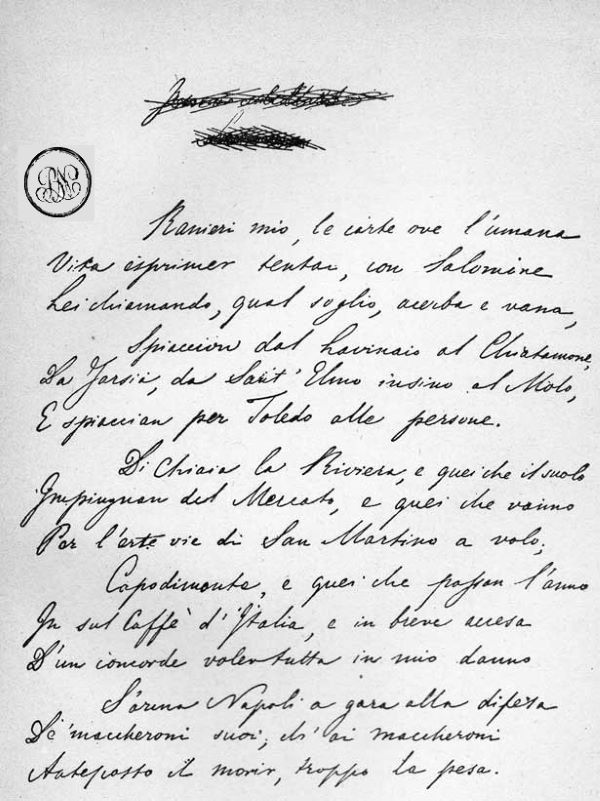 Ranieri mio, le carte ove l'umana
Vita esprimer tentai, con Salomone
Lei chiamando, qual soglio, acerba e vana,
Spiaccion dal Lavinaio al Chiatamone,
Da Tarsia, da Sant'Elmo insino al Molo,
E spiaccian per Toledo alle persone.
Di Chiaia la Riviera, e quei che il suolo
Impinguan del Mercato, e quei che vanno
Per l'erte vie di San Martino a volo;
Capodimonte, e quei che passan l'anno
In sul Caffè d'Italia, e in breve accesa
D'un concorde voler tutta in mio danno
S'arma Napoli a gara alla difesa
De' maccheroni suoi; ch'ai maccheroni
Anteposto il morir, troppo le pesa.